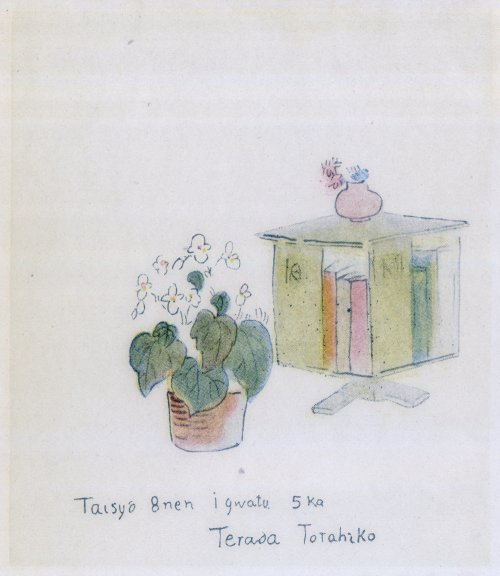 Taisyō 8nen igwatu 5ka
Terada Torahiko